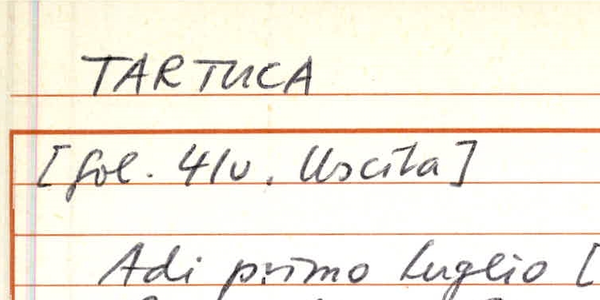 TARTUCA
[fol. 41v. Uscita]
Adi primo luglio [